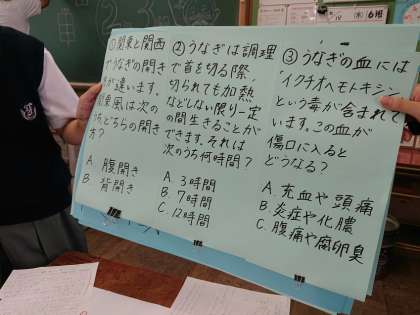 ①関東と関西
でうなぎの開き
が違います。
関東風は次の
うち、どちらの開き
方？
A. 腹開き
B. 背開き
②うなぎは調理
で首を切る際、
切られても加熱
などしない限り一定
の間生きることが
できます。それは
次のうち何時間？
A. 3時間
B. 7時間
C. 12時間
③うなぎの血には
イクチオヘモトキシン
という毒が含まれて
います。この血が
傷口に入ると
どうなる？
A. 充血や頭痛
B. 炎症や化膿
C. 腹痛や腐卵臭